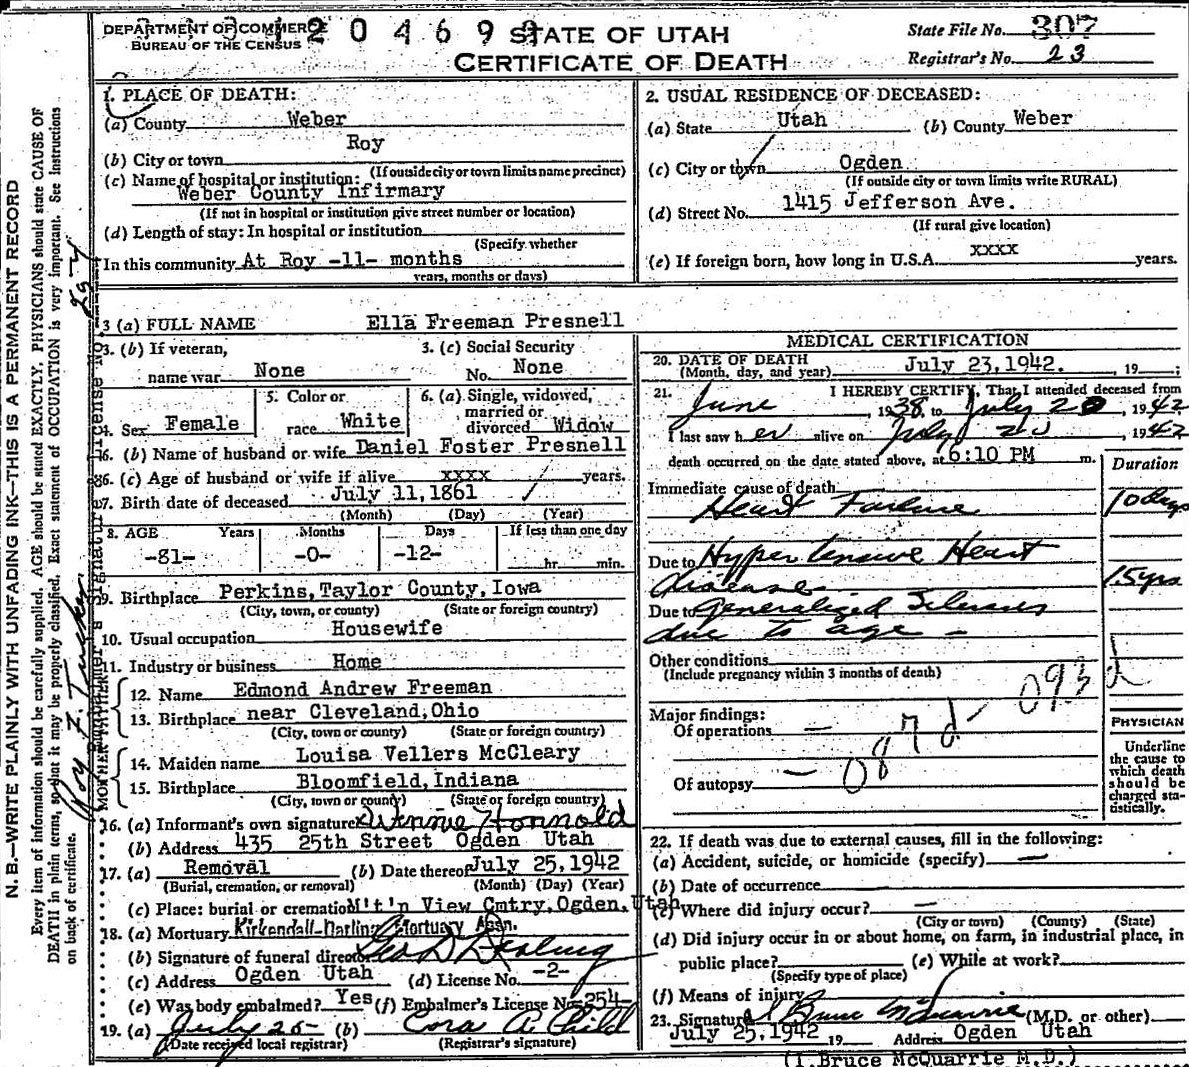 DEPARTMENT OF COMMERCE
BUREAU OF THE CENSUS
2 0 4 6 9
STATE OF UTAH
CERTIFICATE OF DEATH
State File No. 307
Registrar's No. 23
1. PLACE OF DEATH:
(a) County Weber
(b) City or town Roy
(If outside city or town limits name precinct)
(c) Name of hospital or institution:
Weber County Infirmary
(If not in hospital or institution give street number or location)
(d) Length of stay: In hospital or institution
(Specify whether
In this community At Roy -11- months
years, months or days)
2. USUAL RESIDENCE OF DECEASED:
(a) State Utah (b) County Weber
(c) City or town Ogden
(If outside city or town limits write RURAL)
(d) Street No. 1415 Jefferson Ave.
(If rural give location)
(e) If foreign born, how long in U.S.A. xxxx years.
3 (a) FULL NAME Ella Freeman Presnell
3. (b) If veteran, name war None
3. (c) Social Security No. None
4. Sex Female
5. Color or race White
6. (a) Single, widowed, married or divorced Widow
6. (b) Name of husband or wife Daniel Foster Presnell
6. (c) Age of husband or wife if alive xxxx years.
7. Birth date of deceased July 11, 1861
(Month) (Day) (Year)
8. AGE Years Months Days If less than one day
-81- -0- -12- hr. min.
9. Birthplace Perkins, Taylor County, Iowa
(City, town, or county) (State or foreign country)
10. Usual occupation Housewife
11. Industry or business Home
FATHER
12. Name Edmond Andrew Freeman
13. Birthplace near Cleveland, Ohio
(City, town or county) (State or foreign country)
MOTHER
14. Maiden name Louisa Vellers McCleary
15. Birthplace Bloomfield, Indiana
(City, town or county) (State or foreign country)
16. (a) Informant's own signature Winnie Honnold
(b) Address 435 25th Street Ogden Utah
17. (a) Removal (b) Date thereof July 25, 1942
(Burial, cremation, or removal) (Month) (Day) (Year)
(c) Place: burial or cremation M't'n View Cmtry, Ogden, Utah
18. (a) Mortuary Kirkendall-Darling Mortuary Assn.
(b) Signature of funeral director Geo D Darling
(c) Address Ogden Utah (d) License No. -2-
(e) Was body embalmed? Yes (f) Embalmer's License No. 254-
19. (a) July 25- (b) Cora A Child
(Date received local registrar) (Registrar's signature)
MEDICAL CERTIFICATION
20. DATE OF DEATH July 23, 1942. , 19 ;
(Month, day, and year)
21. I HEREBY CERTIFY, That I attended deceased from
June , 1938 to July 20 , 1942
I last saw her alive on July 20 1942
death occurred on the date stated above, at 6:10 PM m.
Duration
Immediate cause of death
Heart Failure 10 days
Due to Hypertensive Heart
disease 15 yrs
Due to Generalized Sclerosis
due to age -
Other conditions
(Include pregnancy within 3 months of death)
Major findings:
Of operations -
Of autopsy -
087 d - 093 d
PHYSICIAN
Underline the cause to which death should be charged statistically.
22. If death was due to external causes, fill in the following:
(a) Accident, suicide, or homicide (specify) -
(b) Date of occurrence
(c) Where did injury occur? -
(City or town) (County) (State)
(d) Did injury occur in or about home, on farm, in industrial place, in
public place? (e) While at work?
(Specify type of place)
(f) Means of injury
23. Signature I Bruce McQuarrie (M.D. or other)
July 25, 1942 19 Address Ogden Utah
(I. Bruce McQuarrie M.D.)
N. B.—WRITE PLAINLY WITH UNFADING INK—THIS IS A PERMANENT RECORD
Every item of information should be carefully supplied. AGE should be stated EXACTLY. PHYSICIANS should state CAUSE OF
DEATH in plain terms, so that it may be properly classified. Exact statement of OCCUPATION is very important. See Instructions
on back of certificate.